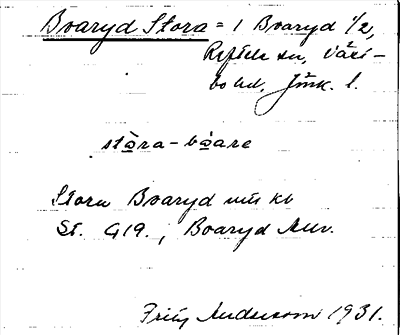 Boaryd Stora = 1 Boaryd 1/2,
Reftele sn, Väst-
bo hd. Jönk. l.
stòra-bòare
Stora Boaryd
St. G19., Boaryd
Fritz Anderson 1931.